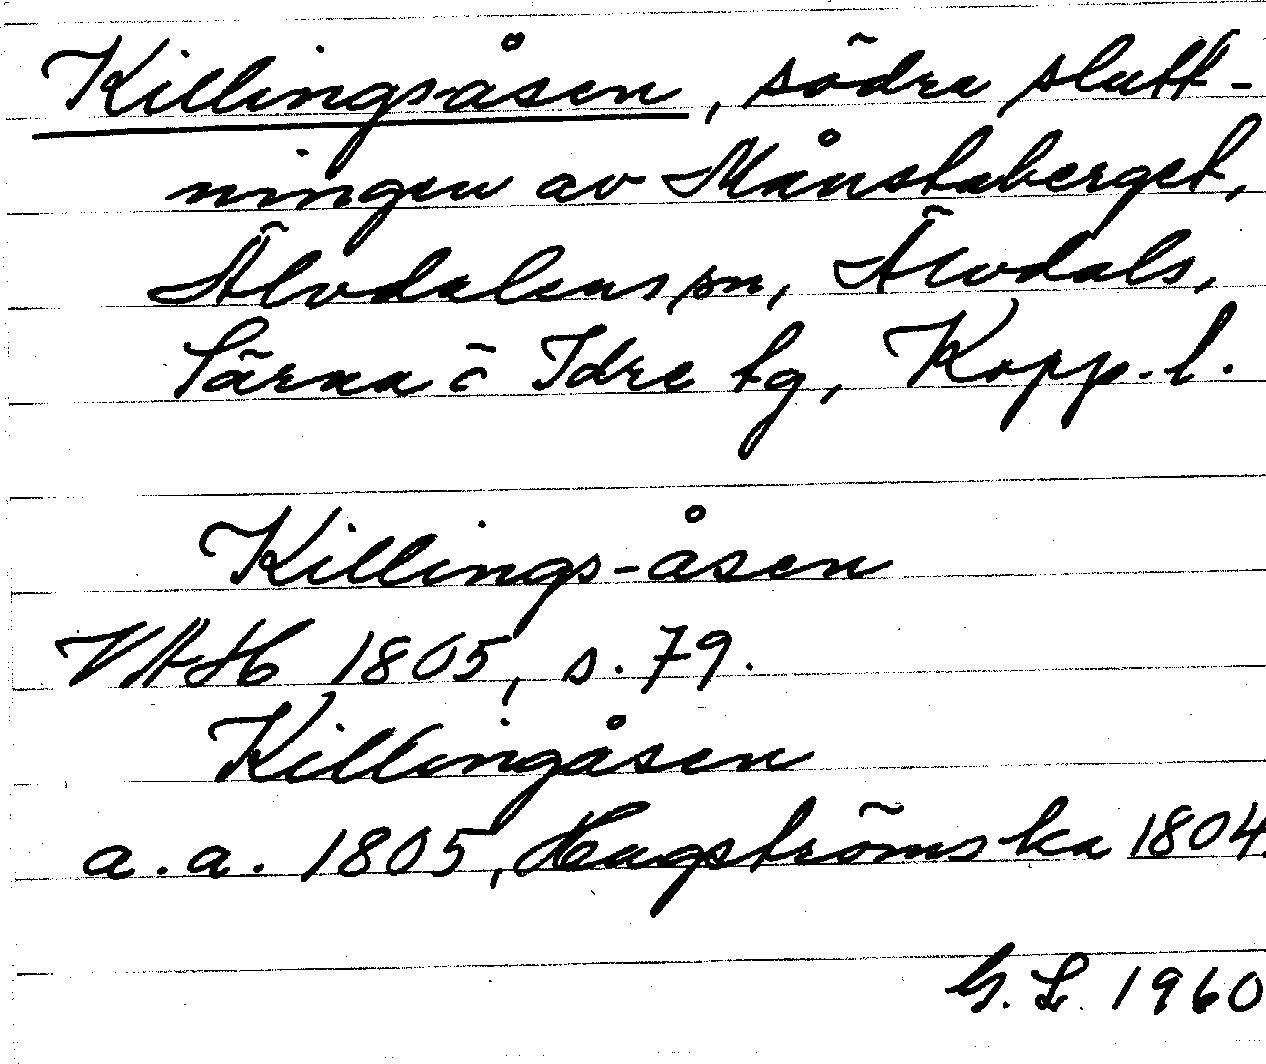 Killingsåsen, södra slutt-
ningen av Månstaberget,
Älvdalens sn, Älvdals,
Särna ō Idre tg, Kopp. l.
Killings-åsen
VAH 1805, s. 79.
Killingåsen
a. a. 1805, Hagströmska 1804.
G. L. 1960